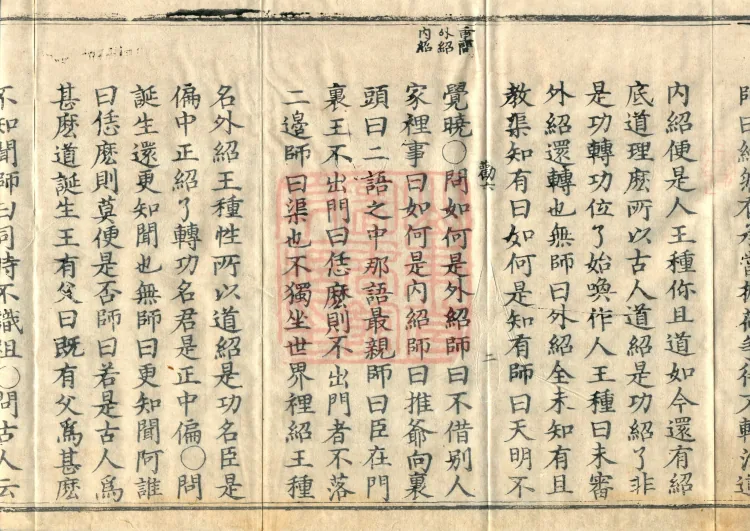 外紹
內紹
師曰紹
內紹便是人王種你且道如今還有紹
底道理麼所以古人道紹是功紹了非
是功轉功位了始喚作人王種曰未審
外紹還轉也無師曰外紹全未知有且
教渠知有曰如何是知有師曰天明不
勸六 二
覺曉○問如何是外紹師曰不借別人
家裡事曰如何是內紹師曰推爺向裏
頭曰二語之中那語最親師曰臣在門
裏王不出門曰恁麼則不出門者不落
二邊師曰渠也不獨坐世界裡紹王種
名外紹王種性所以道紹是功名臣是
偏中正紹了轉功名君是正中偏○問
誕生還更知聞也無師曰更知聞阿誰
曰恁麼則莫便是否師曰若是古人爲
甚麼道誕生王有父曰既有父爲甚麼
不知聞師曰同時不識祖○問古人云